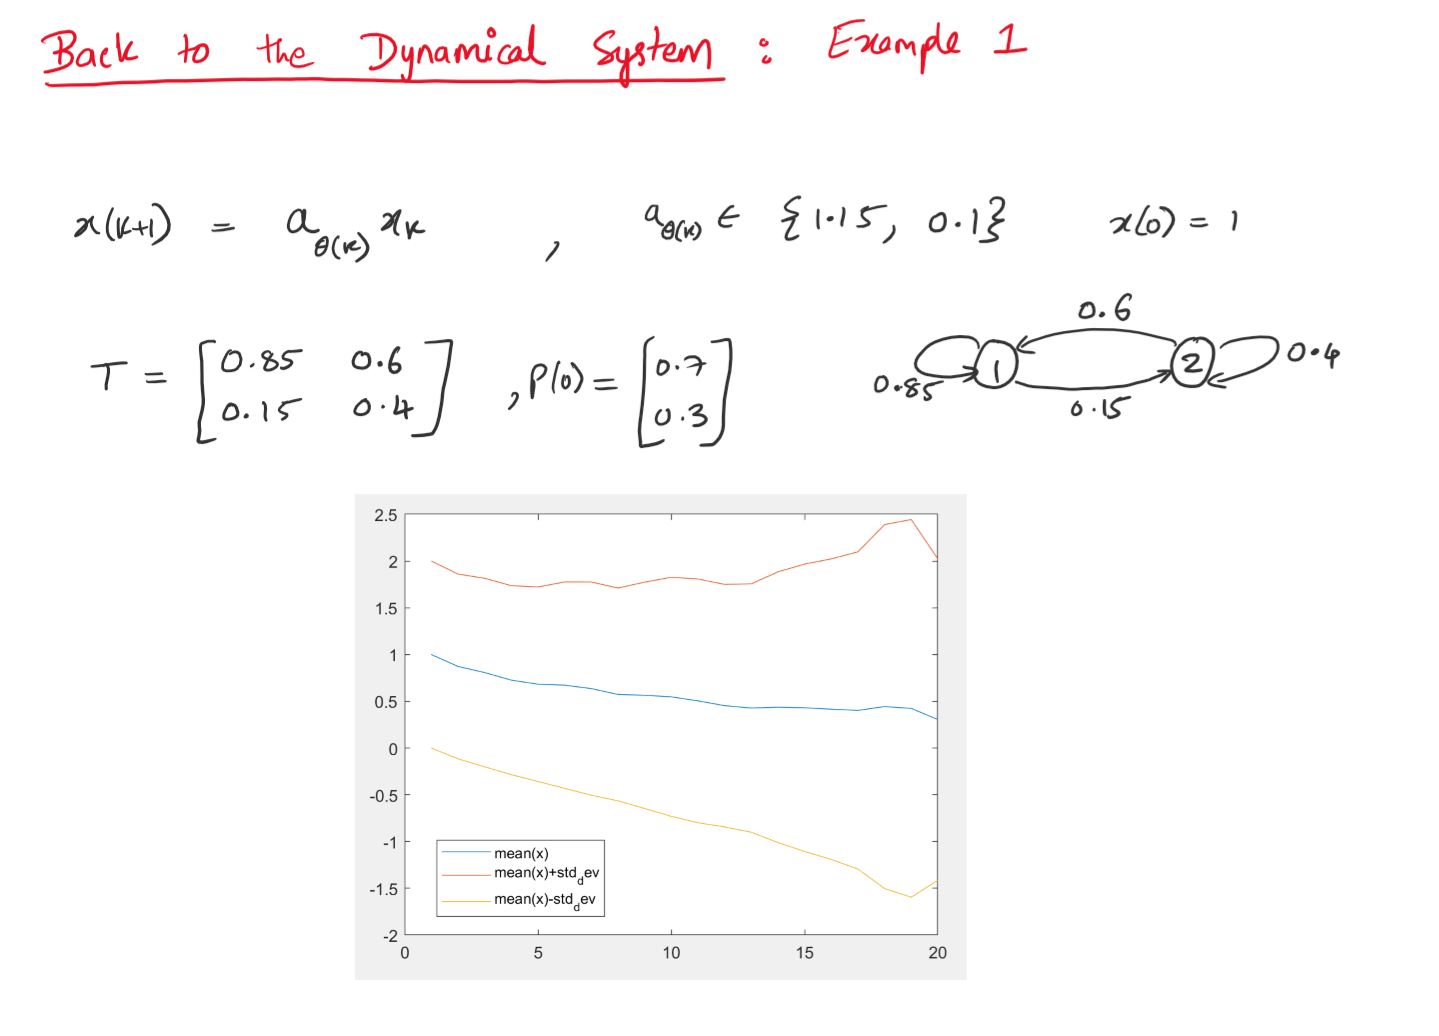 Back to the Dynamical System : Example 1
x(k+1) = a_θ(k) x_k , a_θ(k) ∈ {1.15, 0.1} x(0) = 1
0.6
T = [0.85 0.6
0.15 0.4] , P(0) = [0.7
0.3]
1 2 0.4
0.85 0.15
2.5
2
1.5
1
0.5
0
-0.5
-1
-1.5
-2
mean(x)
mean(x)+std_dev
mean(x)-std_dev
0 5 10 15 20